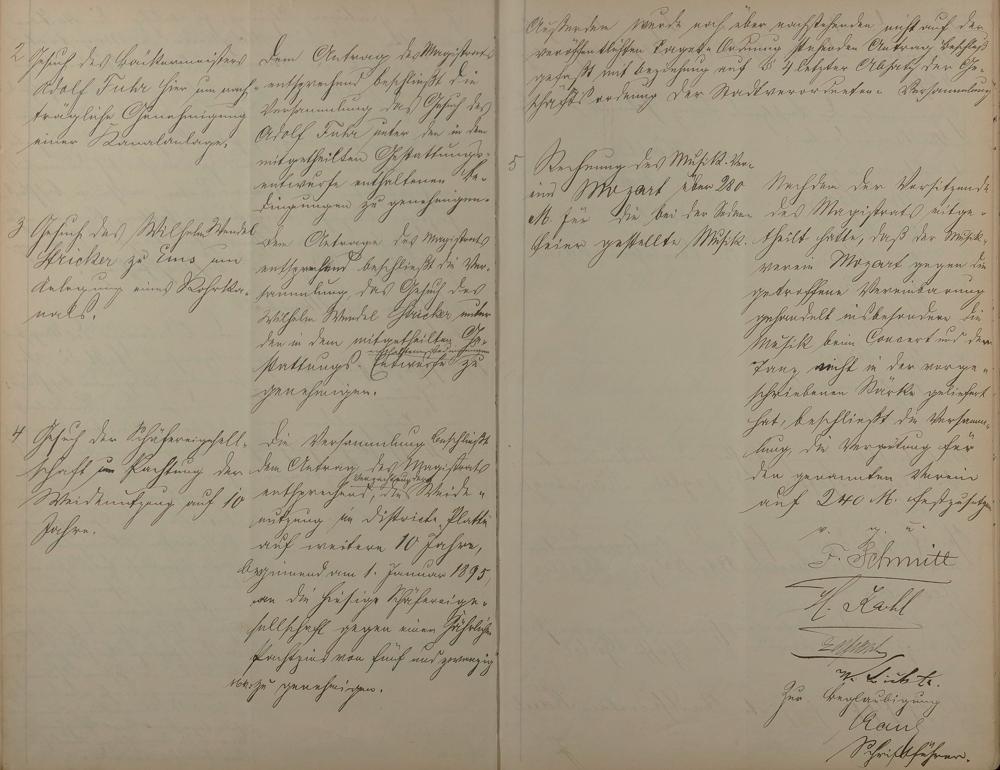 2 Gesuch des Bäckermeisters
Adolf Fuhr hier um nach-
trägliche Genehmigung
einer Kanalanlage.
Dem Antrag des Magistrats
entsprechend beschließt die
Versammlung das Gesuch des
Adolf Fuhr unter den in dem
mitgetheilten Gestattungs-
entwurfe enthaltenen Be-
dingungen zu genehmigen.
3 Gesuch des Wilhelm Wendel
Stricker zu Ems um
Anlegung eines Rohrka-
nals.
Dem Antrage des Magistrats
entsprechend beschließt die Ver-
sammlung das Gesuch des
Wilhelm Wendel Stricker unter
den in dem mitgetheilten Ge-
stattungs-Entwurfe enthaltenen Bedingungen zu
genehmigen.
4 Gesuch der Schäfereigesell-
schaft um Pachtung der
Weidenutzung auf 10
Jahre.
Die Versammlung beschließt
dem Antrag des Magistrats
entsprechend, die Verpachtung der Weide-
nutzung im Districte Platte
auf weitere 10 Jahre,
beginnend am 1. Januar 1895,
an die hiesige Schäfereige-
sellschaft gegen einen jährlichen
Pachtzins von fünf und zwanzig
Mk. zu genehmigen.
Außerdem wurde noch über nachstehenden nicht auf der
veröffentlichten Tages-Ordnung stehenden Antrag Beschluß
gefaßt mit Beziehung auf § 4 letzter Absatz der Ge-
schäftsordnung der Stadtverordneten-Versammlung
5 Rechnung des Musik-Ver-
eins Mozart über 280
M. für die bei der Sedan-
feier gestellte Musik.
Nachdem der Vorsitzende
des Magistrats mitge-
theilt hatte, daß der Musik-
verein Mozart gegen die
getroffene Vereinbarung
gehandelt insbesondere die
Musik beim Concert und dem
Tanz nicht in der vorge-
schriebenen Stärke geliefert
hat, beschließt die Versamm-
lung, die Vergütung für
den genannten Verein
auf 240 M. festzusetzen
v. g. u.
F. Schmitt
H. Kahl
W. Linkz.
Zur Beglaubigung
Kaul
Schriftführer.